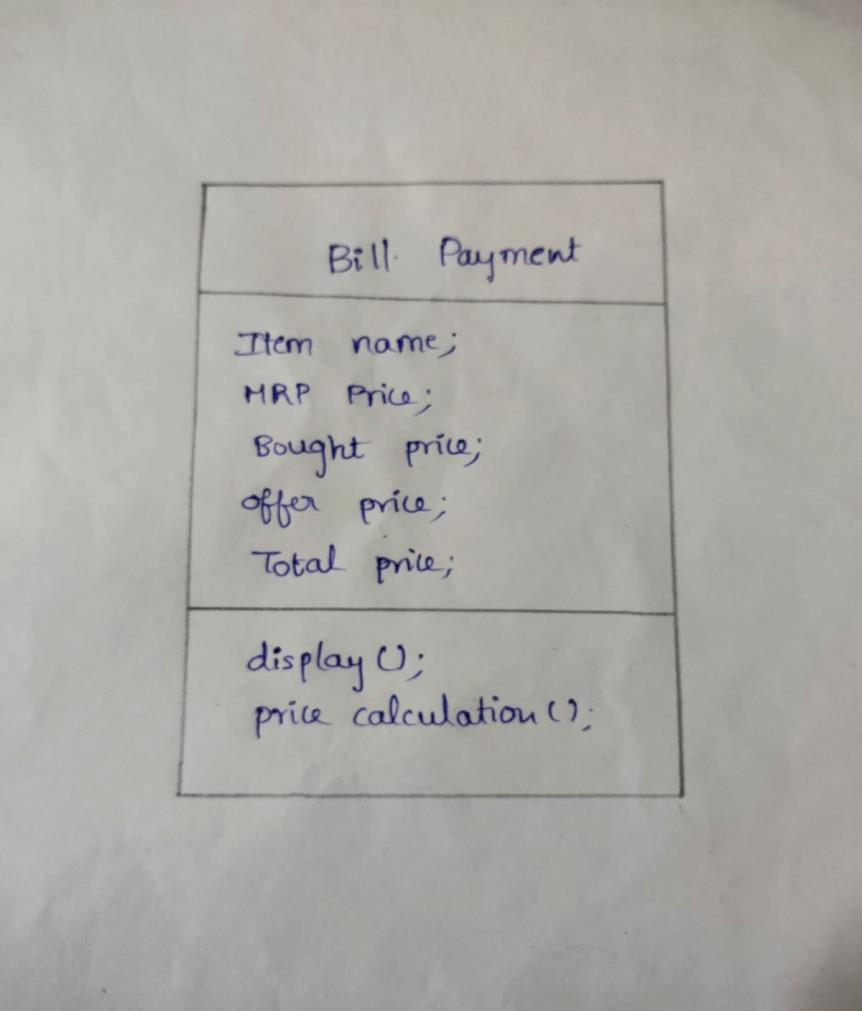 Bill Payment
Item name;
MRP Price;
Bought price;
offer price;
Total price;
display ();
price calculation ();